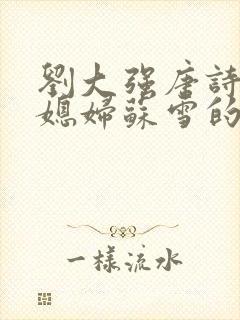 劉大強唐詩
媳婦蘇雪的
一樣流水